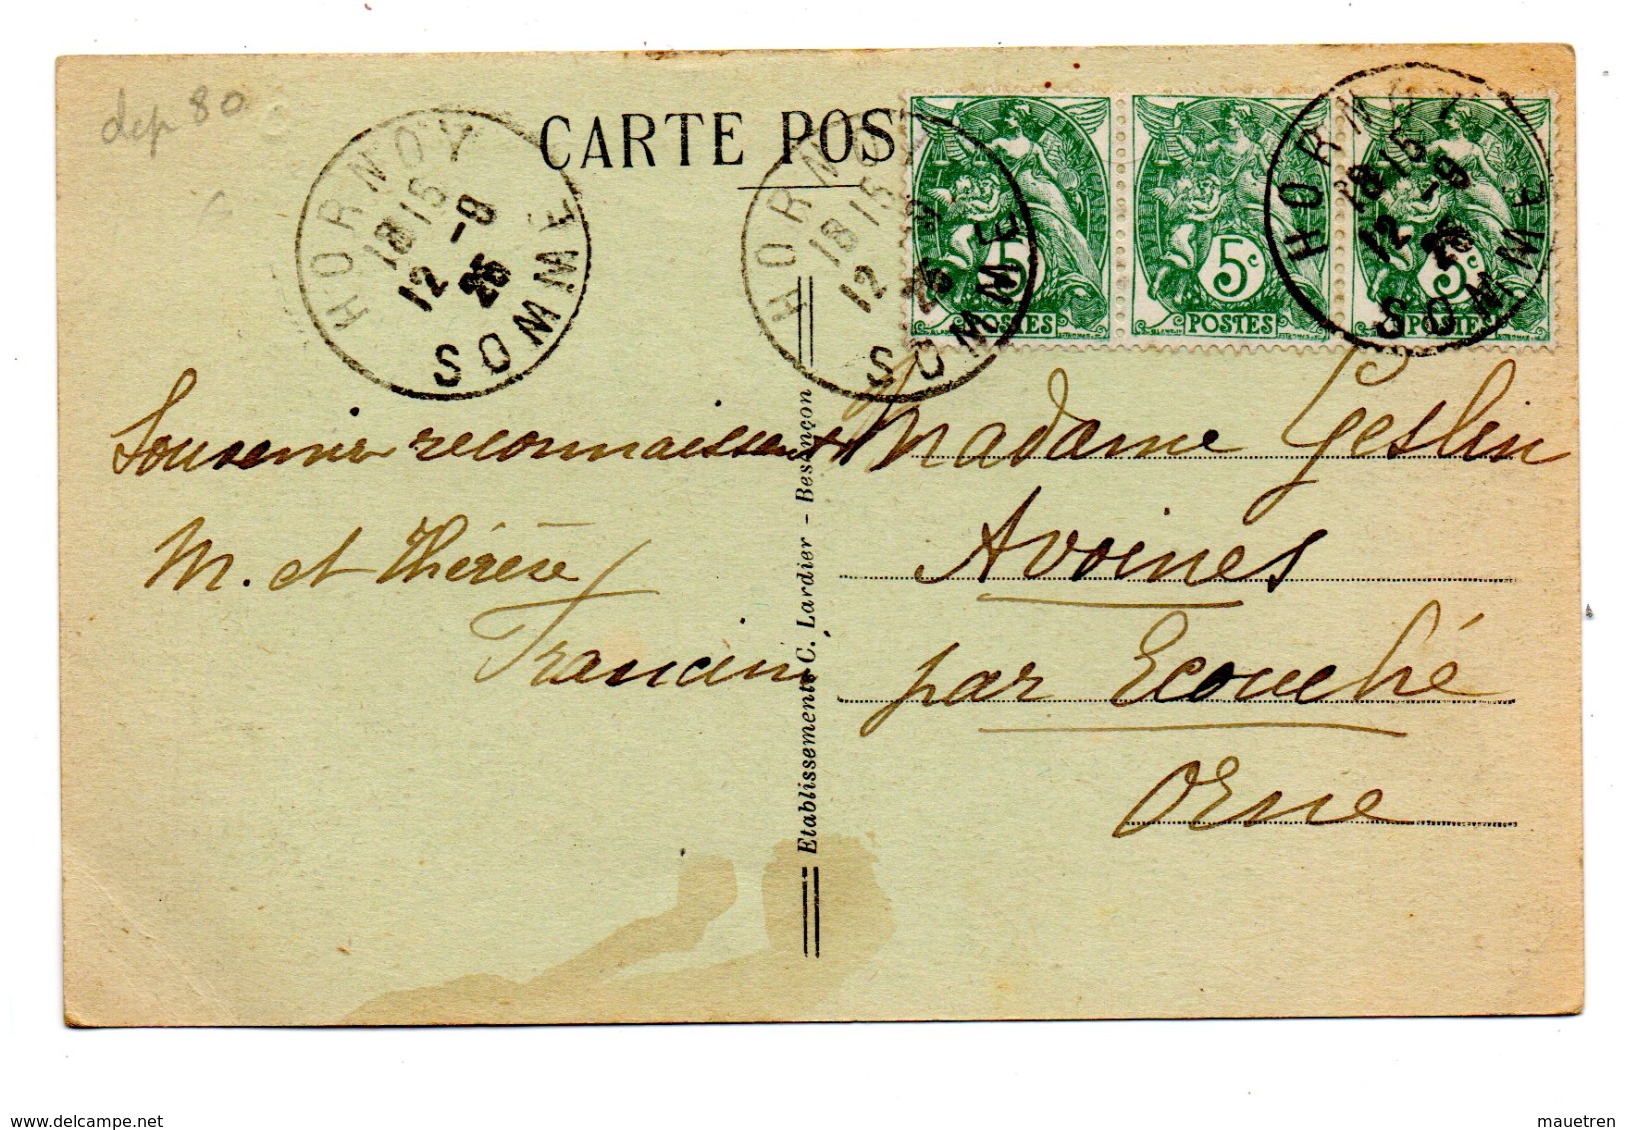 dep 80
CARTE POS
HORNOY
SOMME
18 15
12 -9
25
HORNOY
SOMME
18 15
12 -9
25
HORNOY
SOMME
18 15
12 -9
25
5c
POSTES
5c
POSTES
5c
POSTES
Souvenir reconnaissant
M. et Thérèse
Francin
Etablissements C. Lardier - Besançon
Madame Geslin
Avoines
par Ecouché
Orne
delcampe.net
mauetren